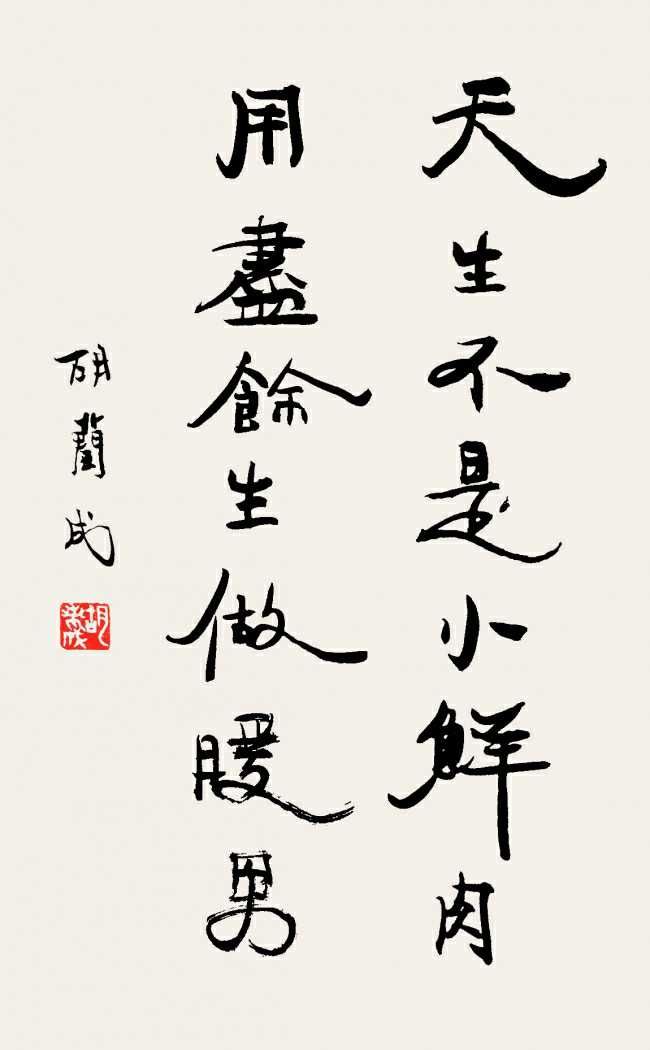 天生不是小鮮肉
用盡餘生做暖男
胡蘭成
胡蘭成